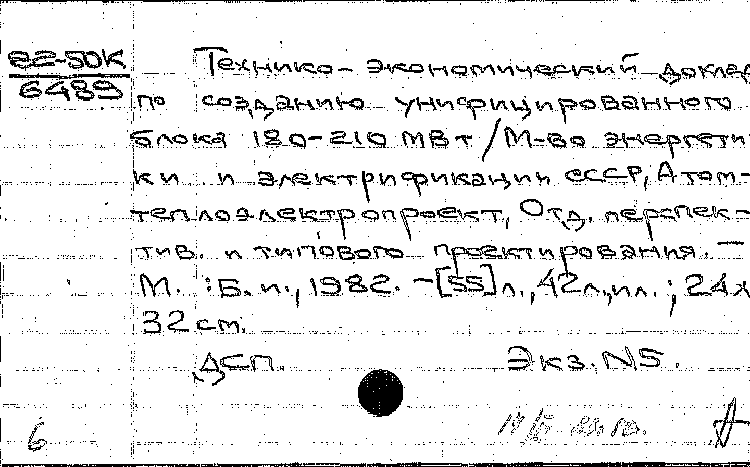 82-50К
6489
Технико-экономический доклад
по созданию унифицированного
блока 180-210 МВт/М-во энергети
ки и электрификации СССР, Атом-
теплоэлектропроект, Отд. перспек-
тив. и типового проектирования. —
М. : Б.и., 1982. -[55]л., 42л.,ил. ; 24х
32 см.
ДСП. Экз. N5.
6